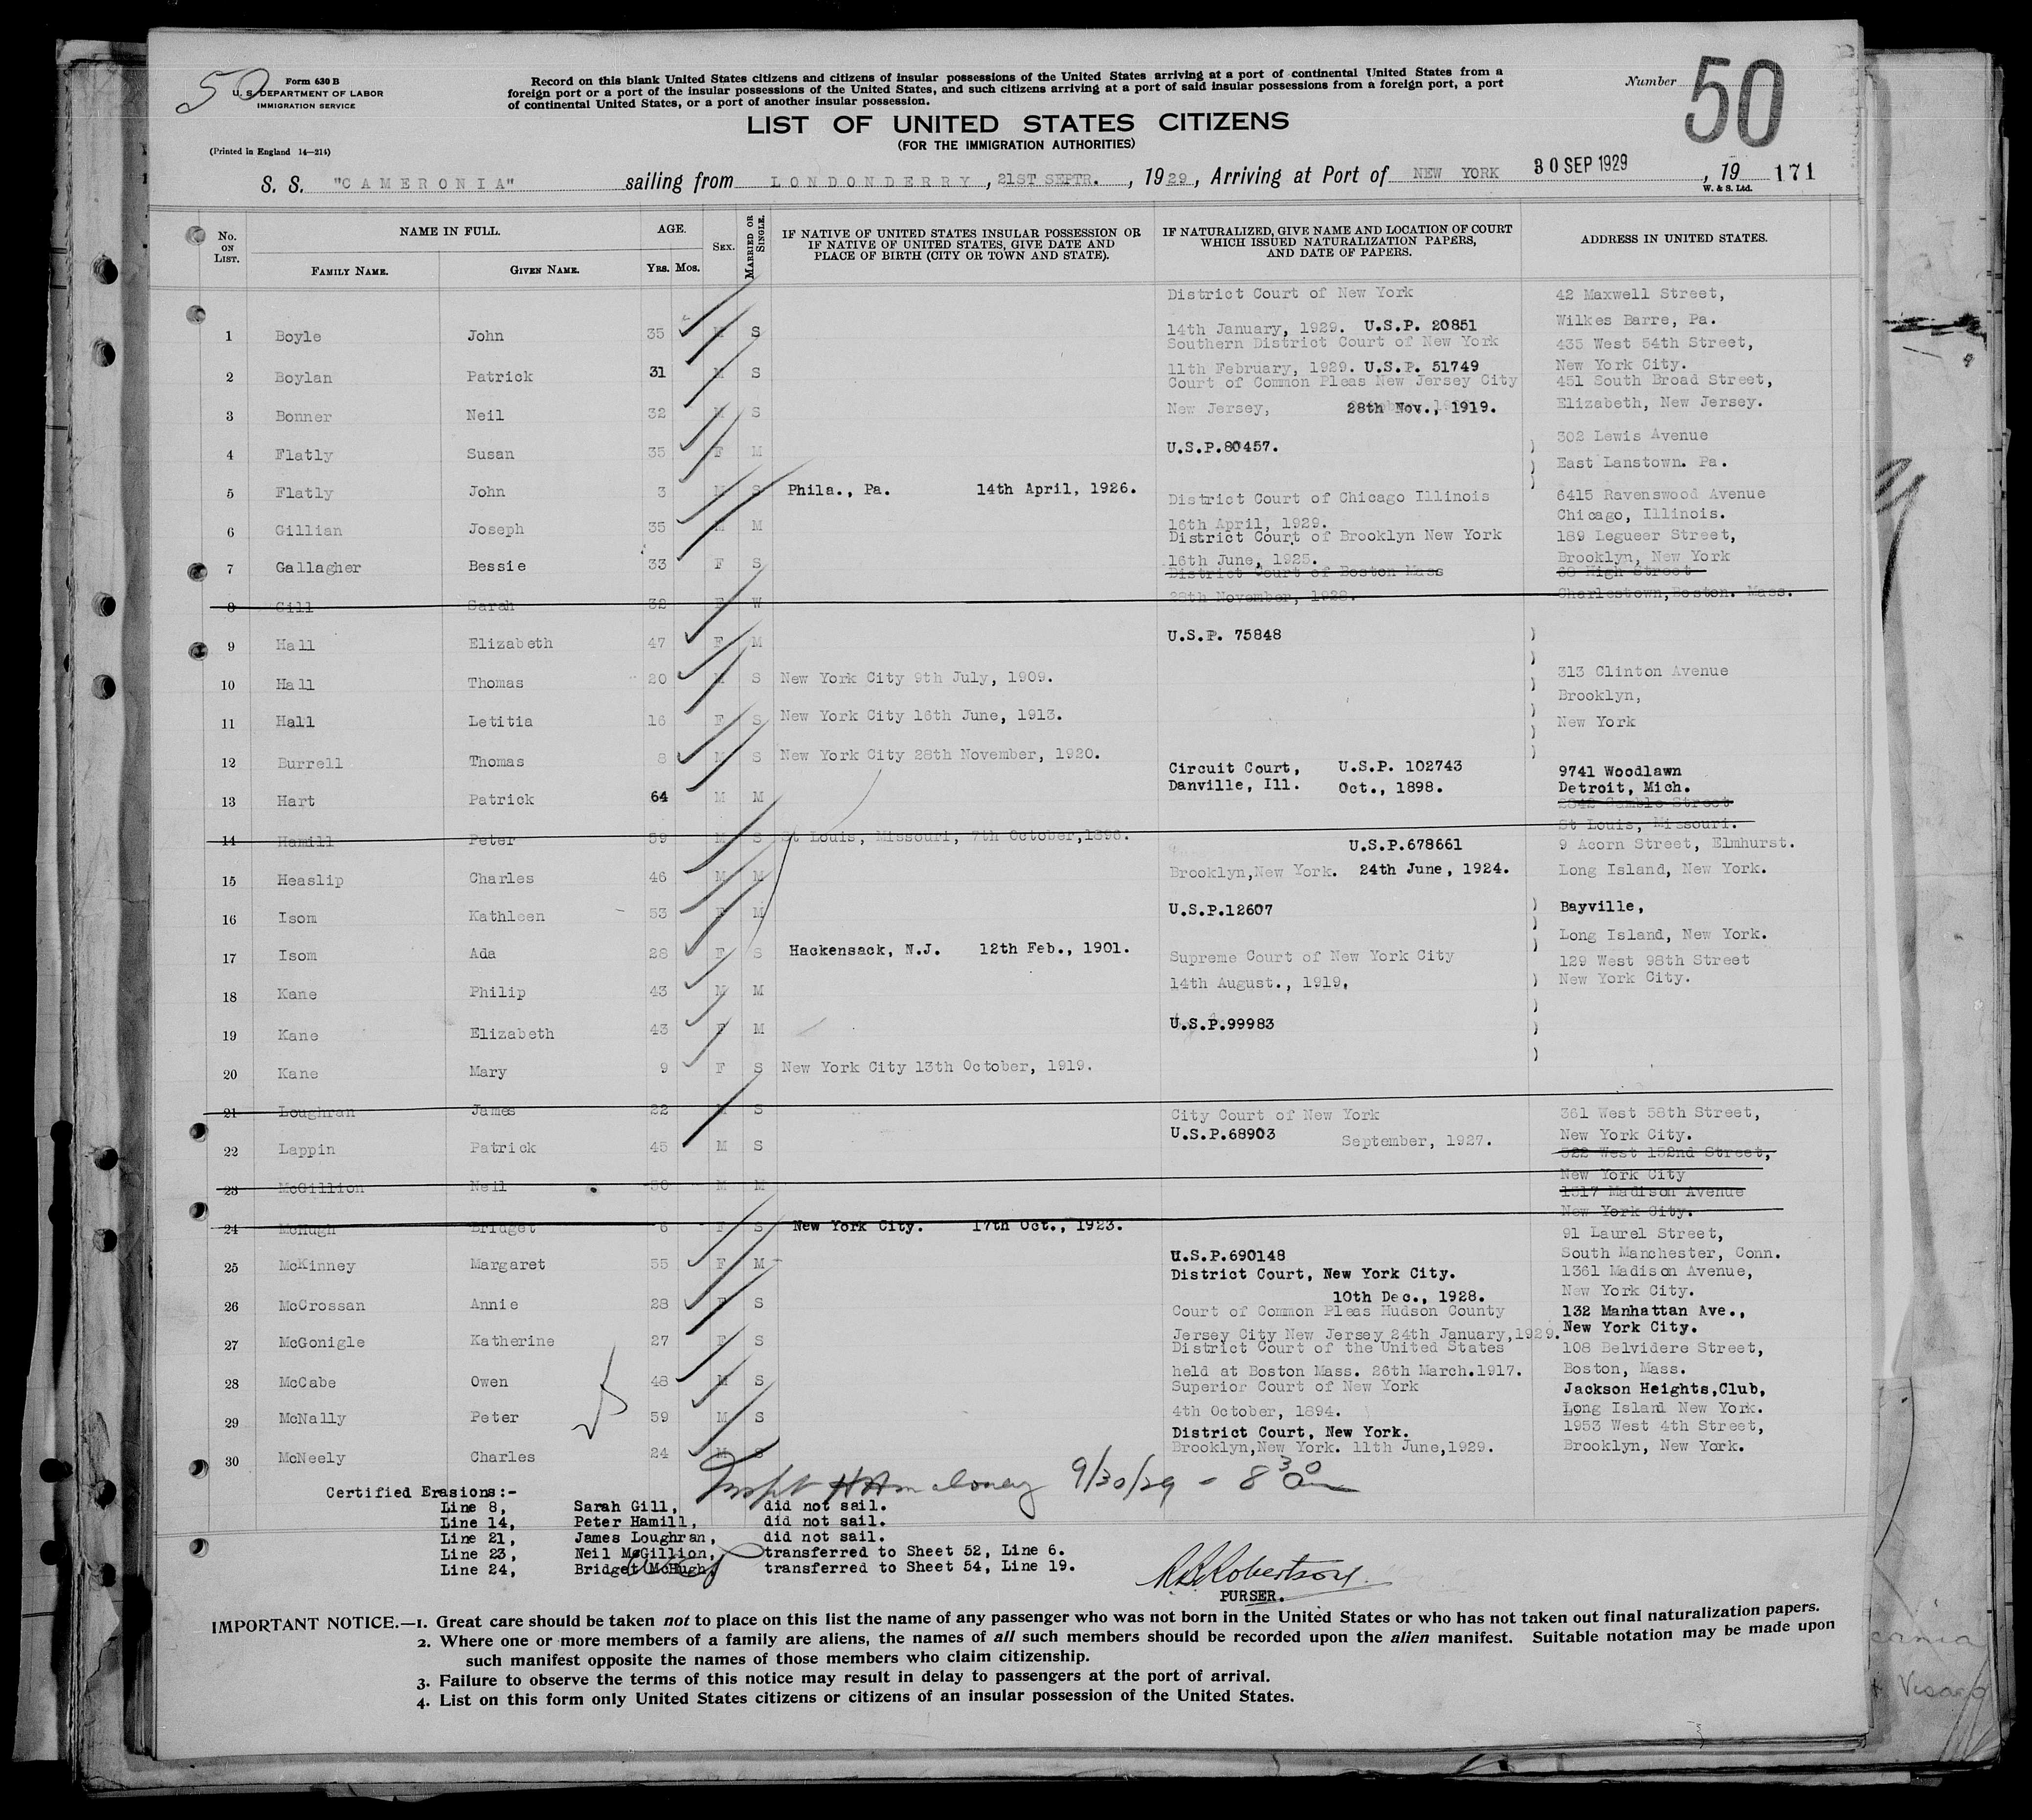 50
Form 630 B
U. S. DEPARTMENT OF LABOR
IMMIGRATION SERVICE
(Printed in England 14—214)
Record on this blank United States citizens and citizens of insular possessions of the United States arriving at a port of continental United States from a
foreign port or a port of the insular possessions of the United States, and such citizens arriving at a port of said insular possessions from a foreign port, a port
of continental United States, or a port of another insular possession.
Number 50
LIST OF UNITED STATES CITIZENS
(FOR THE IMMIGRATION AUTHORITIES)
S. S. "CAMERONIA" sailing from LONDONDERRY, 21ST SEPTR., 1929, Arriving at Port of NEW YORK 30 SEP 1929, 19 171
W. & S. Ltd.
No. ON LIST. NAME IN FULL. FAMILY NAME. GIVEN NAME. AGE. YRS. MOS. SEX. MARRIED OR SINGLE. IF NATIVE OF UNITED STATES INSULAR POSSESSION OR IF NATIVE OF UNITED STATES, GIVE DATE AND PLACE OF BIRTH (CITY OR TOWN AND STATE). IF NATURALIZED, GIVE NAME AND LOCATION OF COURT WHICH ISSUED NATURALIZATION PAPERS, AND DATE OF PAPERS. ADDRESS IN UNITED STATES.
District Court of New York 42 Maxwell Street,
1 Boyle John 35 M S 14th January, 1929. U.S.P. 20851 Wilkes Barre, Pa.
Southern District Court of New York 435 West 54th Street,
2 Boylan Patrick 31 M S 11th February, 1929. U.S.P. 51749 New York City.
Court of Common Pleas New Jersey City 451 South Broad Street,
3 Bonner Neil 32 M S New Jersey, 28th Nov., 1919. Elizabeth, New Jersey.
4 Flatly Susan 35 F M U.S.P.80457. 302 Lewis Avenue
East Lanstown. Pa.
5 Flatly John 3 M S Phila., Pa. 14th April, 1926.
District Court of Chicago Illinois 6415 Ravenswood Avenue
6 Gillian Joseph 35 M M 16th April, 1929. Chicago, Illinois.
District Court of Brooklyn New York 189 Legueer Street,
7 Gallagher Bessie 33 F S 16th June, 1925. Brooklyn, New York
District Court of Boston Mass 68 High Street
8 Gill Sarah 32 F W 28th November, 1928. Charlestown,Boston. Mass.
9 Hall Elizabeth 47 F M U.S.P. 75848
10 Hall Thomas 20 M S New York City 9th July, 1909. 313 Clinton Avenue
Brooklyn,
11 Hall Letitia 16 F S New York City 16th June, 1913. New York
12 Burrell Thomas 8 M S New York City 28th November, 1920.
Circuit Court, U.S.P. 102743 9741 Woodlawn
13 Hart Patrick 64 M M Danville, Ill. Oct., 1898. Detroit, Mich.
2842 Gamble Street
14 Hamill Peter 39 M S St Louis, Missouri, 7th October,1896. St Louis, Missouri.
U.S.P.678661 9 Acorn Street, Elmhurst.
15 Heaslip Charles 46 M M Brooklyn,New York. 24th June, 1924. Long Island, New York.
16 Isom Kathleen 53 F M U.S.P.12607 Bayville,
Long Island, New York.
17 Isom Ada 28 F S Hackensack, N.J. 12th Feb., 1901.
Supreme Court of New York City 129 West 98th Street
18 Kane Philip 43 M M 14th August., 1919. New York City.
19 Kane Elizabeth 43 F M U.S.P.99983
20 Kane Mary 9 F S New York City 13th October, 1919.
21 Loughran James 22 M S
City Court of New York 361 West 58th Street,
22 Lappin Patrick 45 M S U.S.P.68903 September, 1927. New York City.
522 West 152nd Street,
23 McGillion Neil 30 M M New York City
1317 Madison Avenue
24 McHugh Bridget 6 F S New York City. 17th Oct., 1923. New York City.
91 Laurel Street,
25 McKinney Margaret 55 F M U.S.P.690148 South Manchester, Conn.
District Court, New York City. 1361 Madison Avenue,
26 McCrossan Annie 28 F S 10th Dec., 1928. New York City.
Court of Common Pleas Hudson County 132 Manhattan Ave.,
27 McGonigle Katherine 27 F S Jersey City New Jersey 24th January,1929. New York City.
District Court of the United States 108 Belvidere Street,
28 McCabe Owen 48 M S held at Boston Mass. 26th March.1917. Boston, Mass.
Superior Court of New York Jackson Heights,Club,
29 McNally Peter 59 M S 4th October, 1894. Long Island New York.
District Court, New York. 1953 West 4th Street,
30 McNeely Charles 24 M S Brooklyn,New York. 11th June,1929. Brooklyn, New York.
9/30/29 - 8 30 am
Certified Erasions:-
Line 8, Sarah Gill, did not sail.
Line 14, Peter Hamill, did not sail.
Line 21, James Loughran, did not sail.
Line 23, Neil McGillion, transferred to Sheet 52, Line 6.
Line 24, Bridget McHugh, transferred to Sheet 54, Line 19.
Robertson
PURSER.
IMPORTANT NOTICE.—1. Great care should be taken not to place on this list the name of any passenger who was not born in the United States or who has not taken out final naturalization papers.
2. Where one or more members of a family are aliens, the names of all such members should be recorded upon the alien manifest. Suitable notation may be made upon
such manifest opposite the names of those members who claim citizenship.
3. Failure to observe the terms of this notice may result in delay to passengers at the port of arrival.
4. List on this form only United States citizens or citizens of an insular possession of the United States.